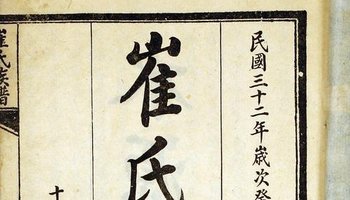 民國三十二年歲次癸
崔氏
十
崔氏族譜